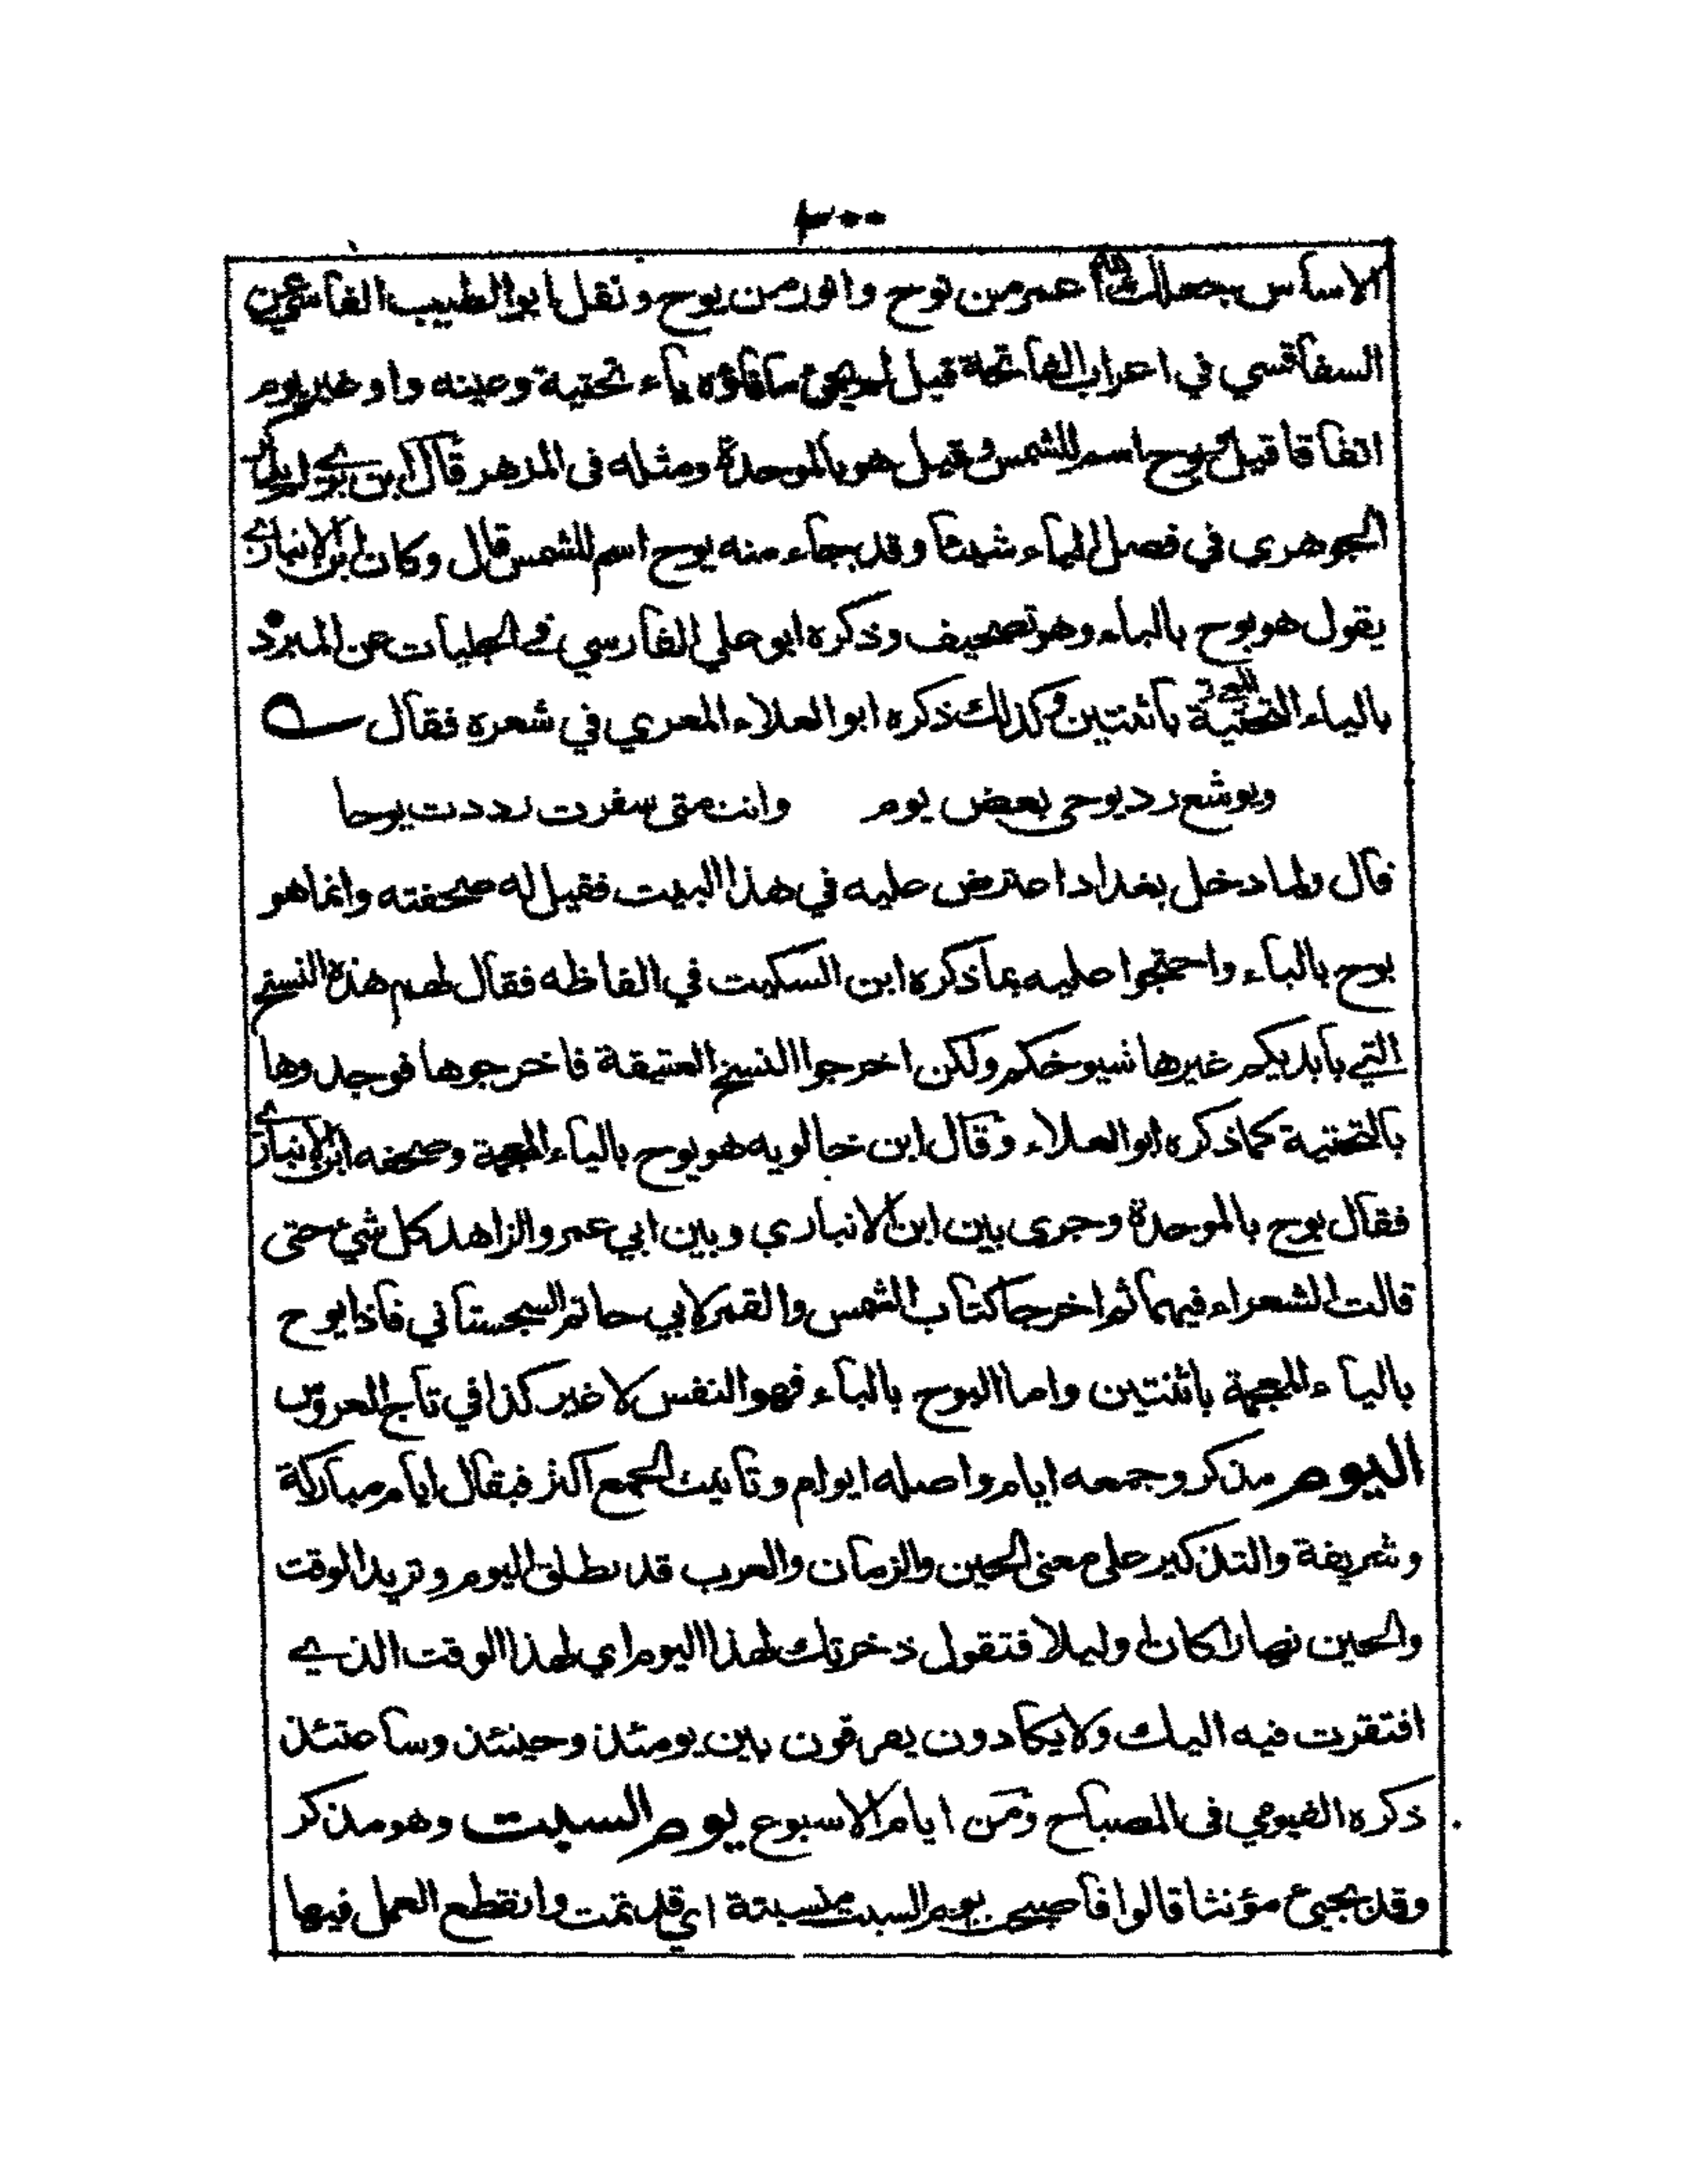 ٣٠٠
الاساس جعلك الله اعمر من نوح وانور من يوح ونقل ابو الطيب الفاسي عن
السفاقسي في اعراب الفاتحة قيل لم يجئ ما فاؤه ياء تحتية وعينه واو غير يوم
اتفاقا قيل ويوح اسم للشمس وقيل هو بالموحدة ومثله فى المزهر قال ابن بري لم يذكر
الجوهري في فصل الياء شيئا وقد جاء منه يوح اسم للشمس قال وكان ابن الانباري
يقول هو بوح بالباء وهو تصحيف وذكره ابو علي الفارسي في الحلبيات عن المبرد
بالياء التحتية باثنتين وكذلك ذكره ابو العلاء المعري في شعره فقال
ويوشع رد يوحى بعض يوم وانت متى سفرت رددت يوحا
قال ولما دخل بغداد اعترض عليه في هذا البيت فقيل له صحفته وانما هو
بوح بالباء واحتجوا عليه بما ذكره ابن السكيت في الفاظه فقال لهم هذه النسخ
التي بايديكم غيرها شيوخكم ولكن اخرجوا النسخ العتيقة فاخرجوها فوجدوها
بالتحتية كما ذكره ابو العلاء وقال ابن خالويه هو يوح بالياء المعجمة وصحفه ابن الانباري
فقال بوح بالموحدة وجرى بين ابن الانباري وبين ابي عمر والزاهد كل شيء حتى
قالت الشعراء فيهما ثم اخرجا كتاب الشمس والقمر لابي حاتم السجستاني فاذا يوح
بالياء المعجمة باثنتين واما البوح بالباء فهو النفس لا غير كذا في تاج العروس
اليوم مذكر وجمعه ايام واصله ايوام وتانيث الجمع اكثر فيقال ايام مباركة
وشريفة والتذكير على معنى الحين والزمان والعرب قد تطلق اليوم وتريد الوقت
والحين نهارا كان او ليلا فتقول ذخرتك لهذا اليوم اي لهذا الوقت الذي
افتقرت فيه اليك ولا يكادون يعرقون بين يومئذ وحينئذ وساعتئذ
ذكره الفيومي فى المصباح ومن ايام الاسبوع يوم السبت وهو مذكر
وقد يجيئ مؤنثا قالوا فاصبحت يوم السبت منسبتة اي قد تمت وانقطع العمل فيها